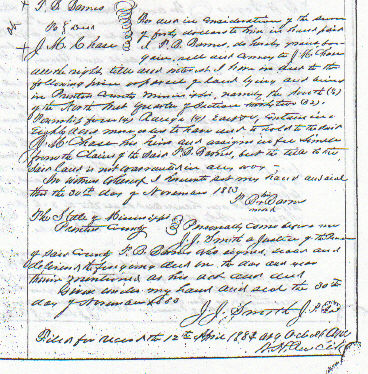 P. B. Barnes
To } Deed
J. M. Chase
For and in consideration of the sum
of forty dollars to him in hand paid
I P. B. Barnes, do hereby grant bar-
gain, sell and convey to J. M. Chase
all the right, title and interest I have in and to the
following piece or parcel of land lying and being
in Prentiss County Mississippi, namely, the South (½)
of the North East Quarter of Section
Township four (4) Range (4) East containing
Eighty acres more or less to have and to hold to the said
J. M. Chase his heirs and assigns in fee simple
from the claim of the said P. B. Barnes, but the title to the
said land is not warranted in any way
In witness whereof I hereunto set my hand and seal
this the 30th day of November 1883
P. B. Barnes
his
mark
The State of Mississippi
Prentiss County
Personally came before me
J. J. Smith a Justice of the Peace
of said County P. B. Barnes who signed, sealed and
delivered the foregoing deed on the day and year
therein mentioned as his act and deed
Given under my hand and seal the 30th
day of November 1883
J. J. Smith J. P.
Filed for record the 12th April 1884 at 9 o'clock A.M.